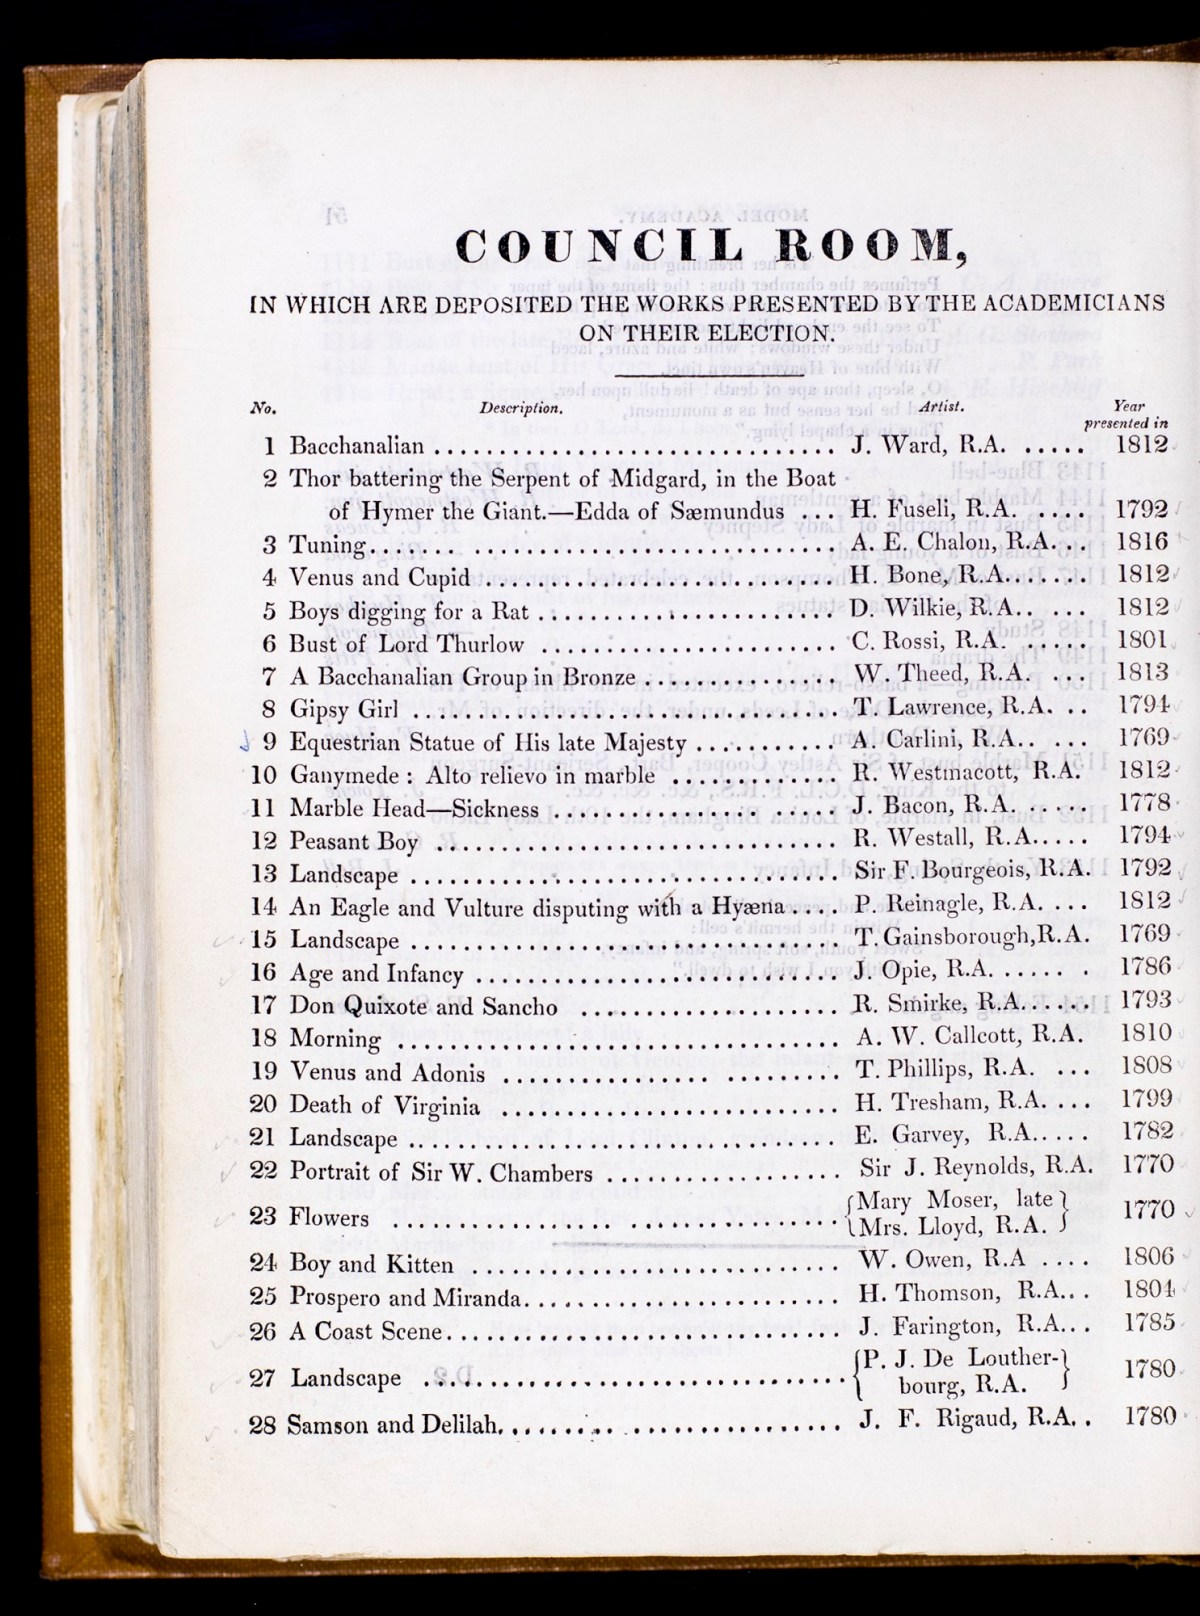 COUNCIL ROOM,
IN WHICH ARE DEPOSITED THE WORKS PRESENTED BY THE ACADEMICIANS
ON THEIR ELECTION.
No. Description. Artist. Year
presented in
1 Bacchanalian .................................. J. Ward, R.A. ..... 1812
2 Thor battering the Serpent of Midgard, in the Boat
of Hymer the Giant.—Edda of Sæmundus .... H. Fuseli, R.A. .... 1792
3 Tuning....... ............................... A. E. Chalon, R.A... 1816
4 Venus and Cupid ............................... H. Bone, R.A....... 1812
5 Boys digging for a Rat ......................... D. Wilkie, R.A.. ... 1812
6 Bust of Lord Thurlow ......................... C. Rossi, R.A. ..... 1801
7 A Bacchanalian Group in Bronze ................ W. Theed, R.A. ... 1813
8 Gipsy Girl .................................... T. Lawrence, R.A. .. 1794
9 Equestrian Statue of His late Majesty ............ A. Carlini, R.A.. ... 1769
10 Ganymede : Alto relievo in marble .............. R. Westmacott, R.A. 1812
11 Marble Head—Sickness ........................ J. Bacon, R.A. ..... 1778
12 Peasant Boy .................................. R. Westall, R.A..... 1794
13 Landscape .................................... Sir F. Bourgeois, R.A. 1792
14 An Eagle and Vulture disputing with a Hyæna.... P. Reinagle, R.A. ... 1812
15 Landscape .................................... T. Gainsborough, R.A. 1769
16 Age and Infancy .............................. J. Opie, R.A. ...... . 1786
17 Don Quixote and Sancho ...................... R. Smirke, R.A..... 1793
18 Morning ...................................... A. W. Callcott, R.A. 1810
19 Venus and Adonis ............................. T. Phillips, R.A. ... 1808
20 Death of Virginia ............................. H. Tresham, R.A. ... 1799
21 Landscape .................................... E. Garvey, R.A..... 1782
22 Portrait of Sir W. Chambers .................... Sir J. Reynolds, R.A. 1770
23 Flowers ...................................... {Mary Moser, late
Mrs. Lloyd, R.A. } 1770
24 Boy and Kitten ............................... W. Owen, R.A .... 1806
25 Prospero and Miranda.......................... H. Thomson, R.A... 1804
26 A Coast Scene................................. J. Farington, R.A... 1785
27 Landscape .................................... {P. J. De Louther-
bourg, R.A. } 1780
28 Samson and Delilah............................ J. F. Rigaud, R.A. . 1780